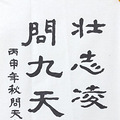 壮志凌
問九天
丙申年秋問天